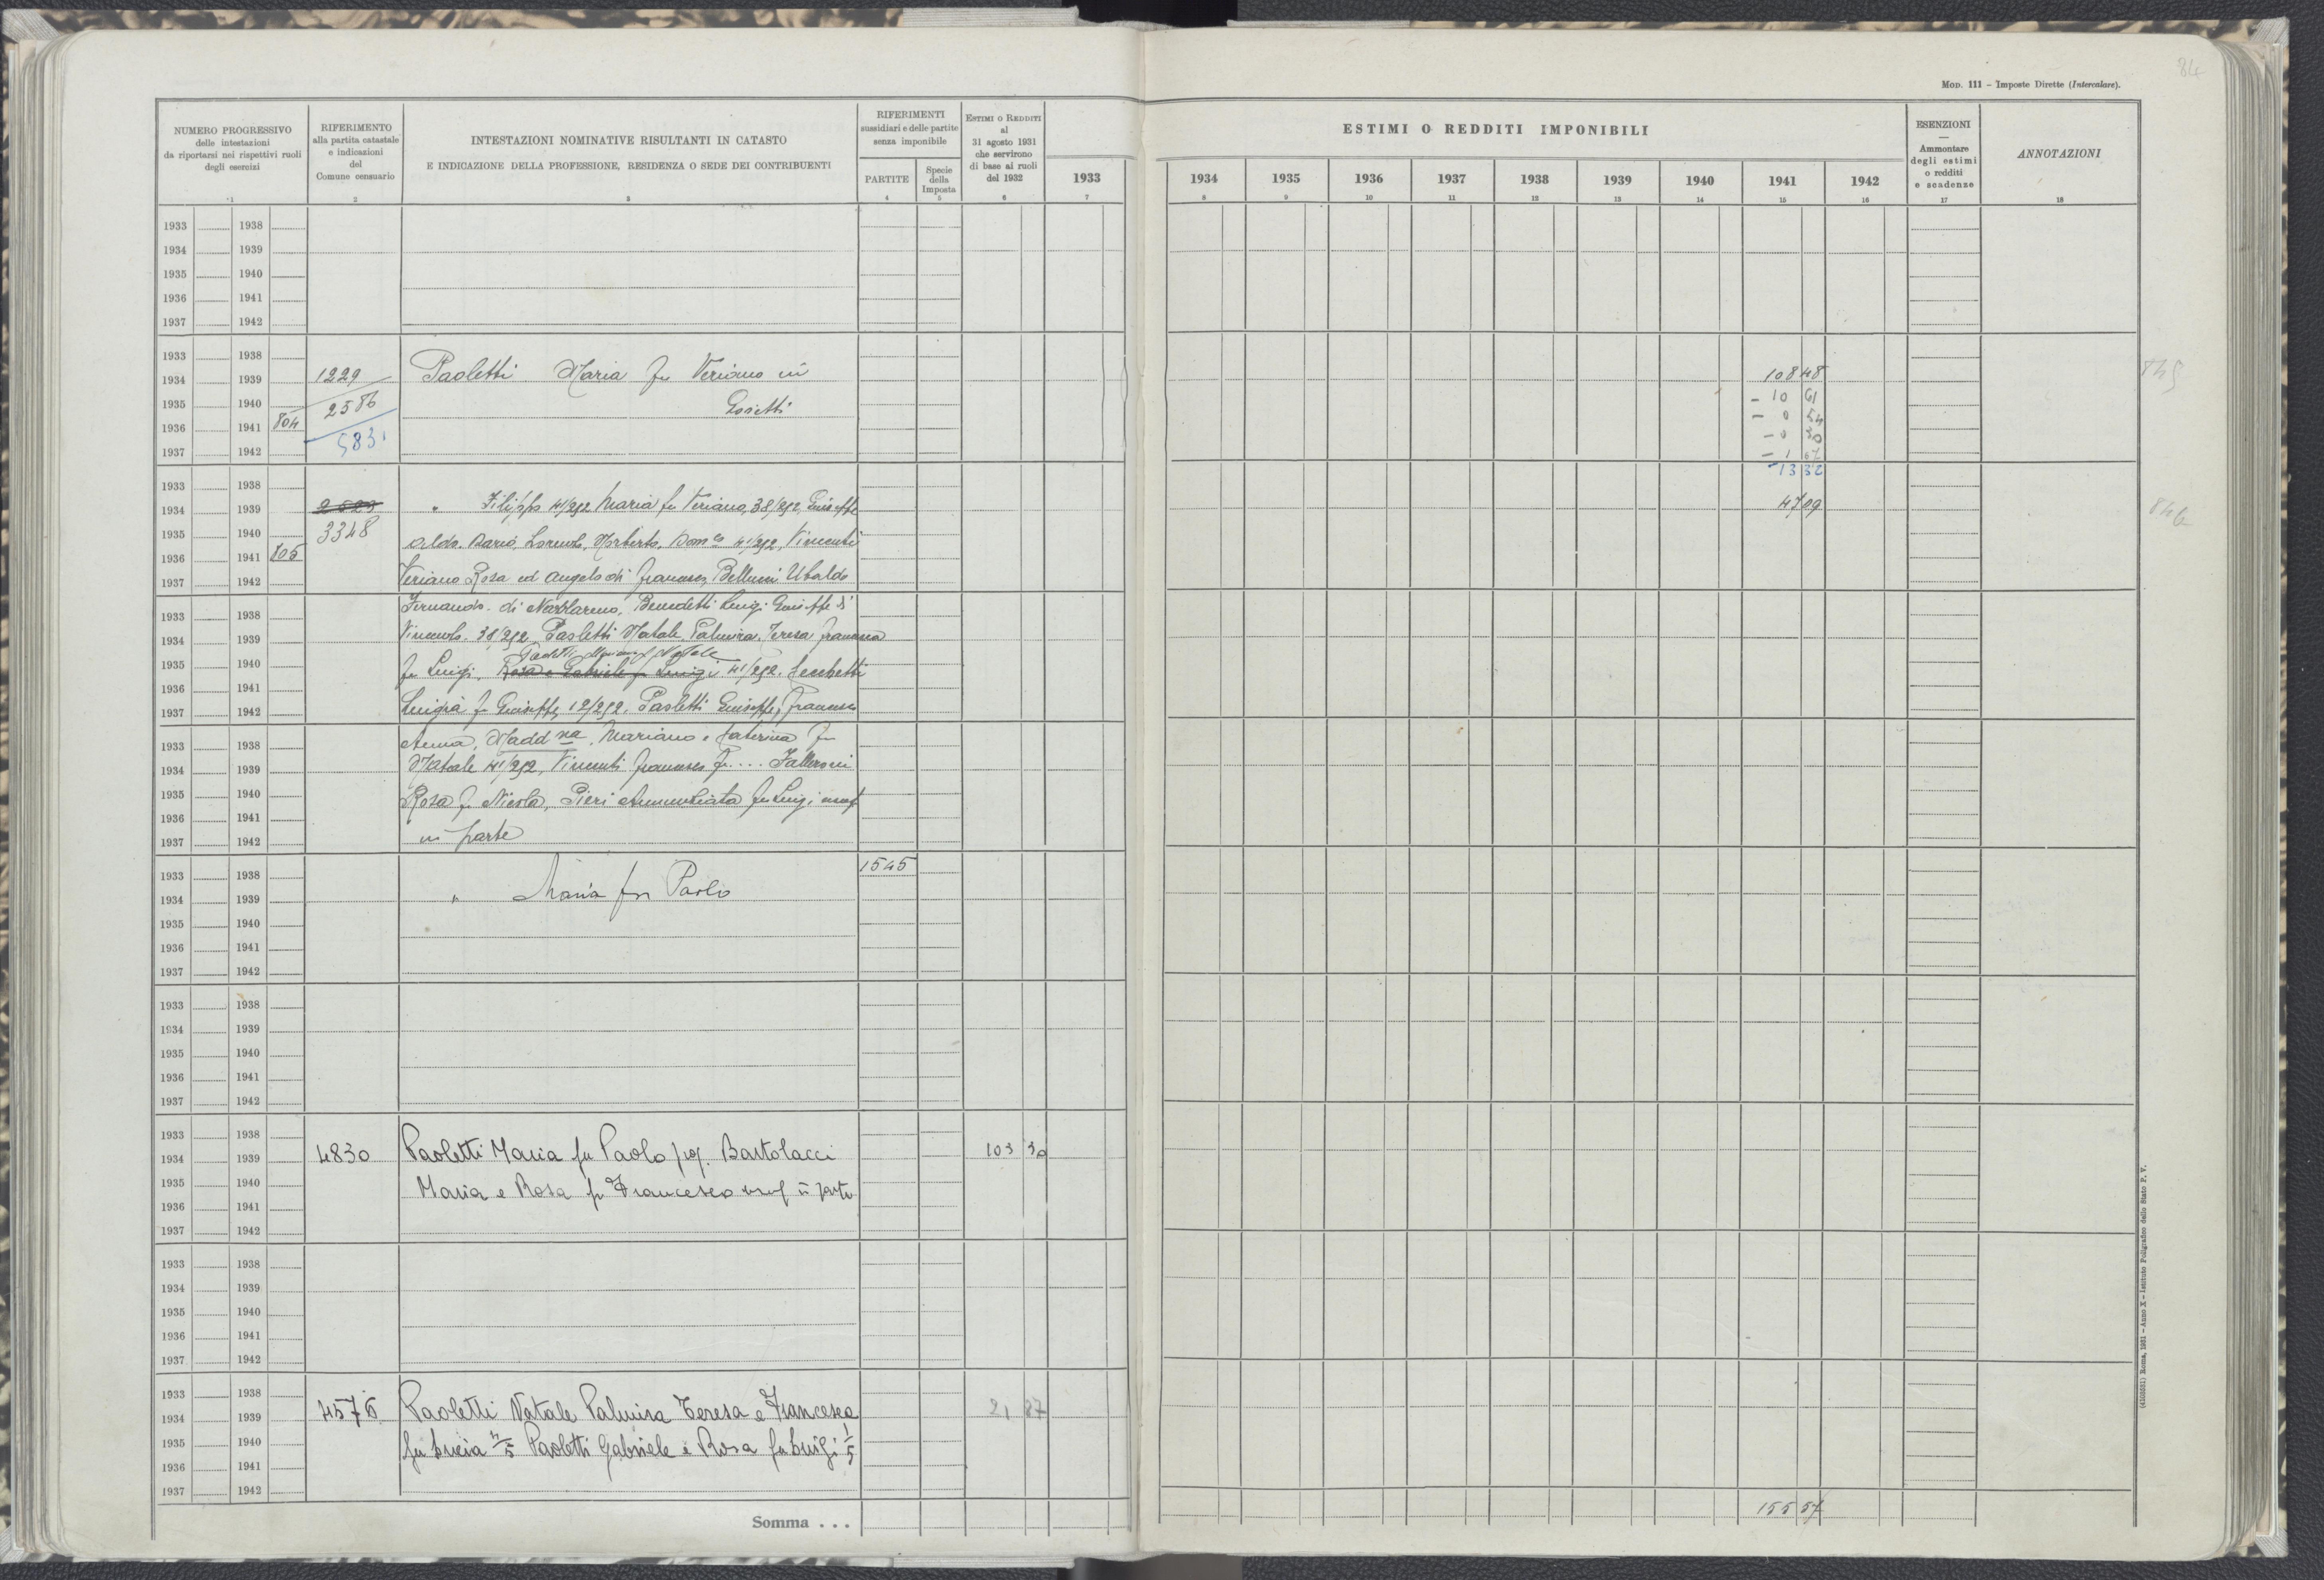 84
MOD. 111 – Imposte Dirette (Intercalare).
NUMERO PROGRESSIVO
delle intestazioni
da riportarsi nei rispettivi ruoli
degli esercizi
1
RIFERIMENTO
alla partita catastale
e indicazioni
del
Comune censuario
2
INTESTAZIONI NOMINATIVE RISULTANTI IN CATASTO
E INDICAZIONE DELLA PROFESSIONE, RESIDENZA O SEDE DEI CONTRIBUENTI
3
RIFERIMENTI
sussidiari e delle partite
senza imponibile
PARTITE
4
Specie
della
Imposta
5
ESTIMI O REDDITI
al
31 agosto 1931
che servirono
di base ai ruoli
del 1932
6
1933
7
ESTIMI O REDDITI IMPONIBILI
1934 1935 1936 1937 1938 1939 1940 1941 1942
8 9 10 11 12 13 14 15 16
ESENZIONI
—
Ammontare
degli estimi
o redditi
e scadenze
17
ANNOTAZIONI
18
1933 1938
1934 1939
1935 1940
1936 1941
1937 1942
1933 1938
1934 1939 1229 Paoletti Maria fu Veriano in 108 48 845
1935 1940 2586 - 10 61
1936 1941 804 - 0 54
5831 - 0 30
1937 1942 - 1 67
- 13 32
1933 1938
1934 1939 2523 " Filippo 41/252 Maria fu Veriano, 38/252, Giuseppe 47 09 846
1935 1940 3348 Aldo. Dario, Lorenzo, Norberto, Dom.co 41/252, Vincenti
1936 1941 805
1937 1942 Veriano Rosa ed Angelo di Francesco, Bellucci Ubaldo
1933 1938 Fernando. di Nazzareno, Benedetti Luigi Giuseppe di
1934 1939 Vincenzo. 38/252, Paoletti Natale, Palmira, Teresa Francesca
Paoletti Mariano fu Natale
1935 1940 fu Luigi, Rosa e Gabriele fu Luigi 41/252.
1936 1941
1937 1942 Luigia fu Giuseppe, 12/252. Paoletti Giuseppe, Francesco
1933 1938 Anna, Madd.na, Mariano e Caterina fu
1934 1939 Natale 41/252, Vincenti Francesco fu .... Falleroni
1935 1940 Rosa fu Nicola, Pieri Annunziata fu Luigi usuf
1936 1941
1937 1942 in parte
1933 1938 1545
1934 1939 " Maria fu Paolo
1935 1940
1936 1941
1937 1942
1933 1938
1934 1939
1935 1940
1936 1941
1937 1942
1933 1938
1934 1939 4830 Paoletti Maria fu Paolo prop. Bartolacci 103 30
1935 1940 Maria e Rosa fu Francesco usuf in parte
1936 1941
1937 1942
1933 1938
1934 1939
1935 1940
1936 1941
1937 1942
1933 1938
1934 1939 4576 Paoletti Natale Palmira Teresa e Francesca 21 87
1935 1940 fu Lucia 4/5 Paoletti Gabriele e Rosa fu Luigi 1/5
1936 1941
1937 1942
Somma . . . 155 57
(4103531) Roma, 1931 – Anno X – Istituto Poligrafico dello Stato P. V.